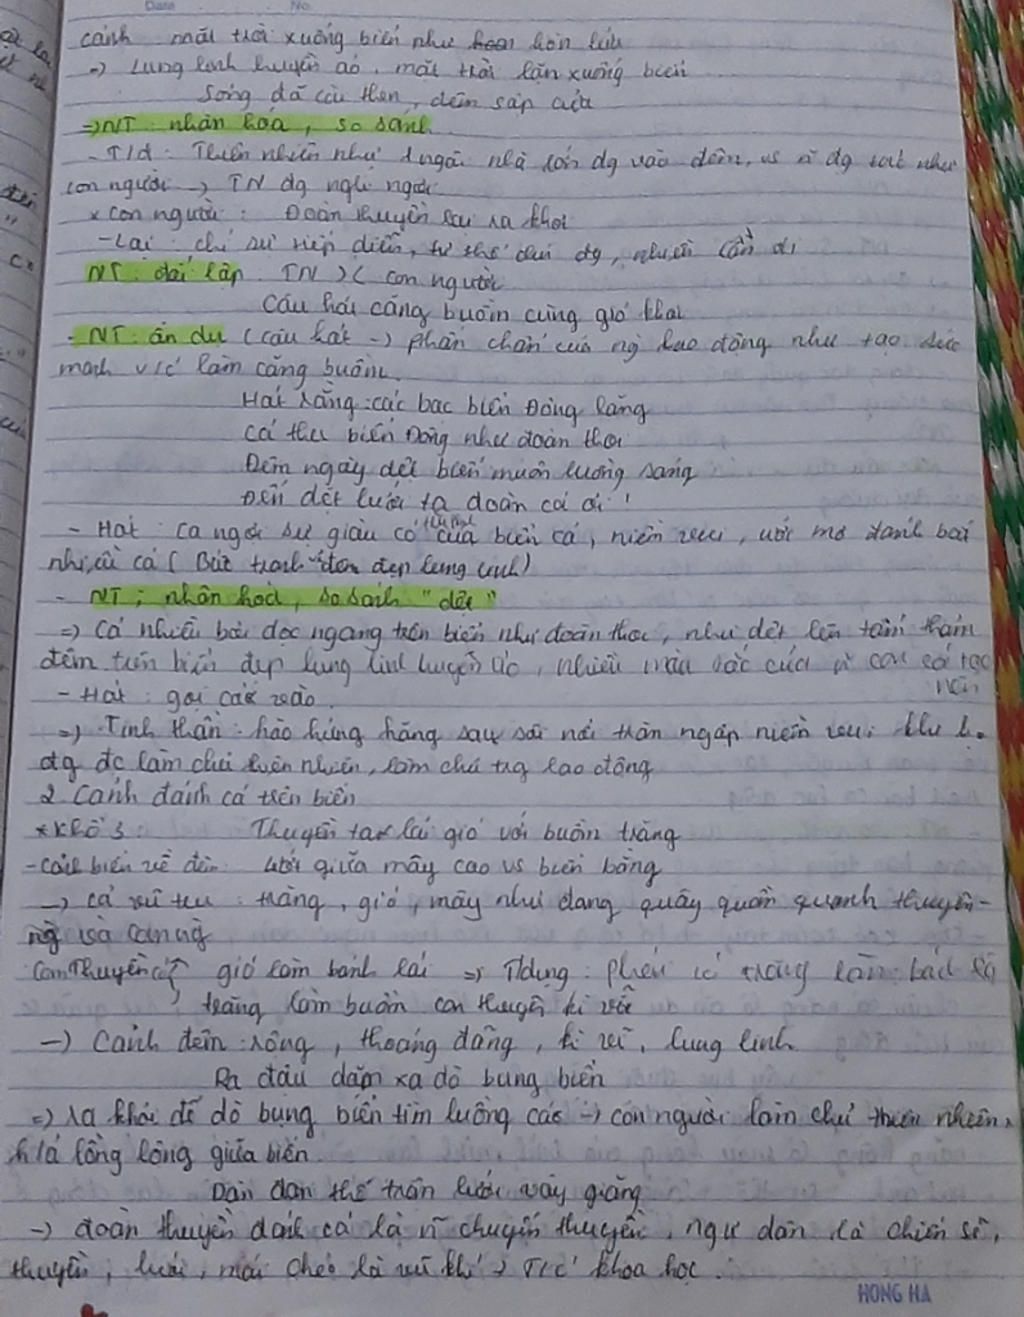 Date No.
cảnh mặt trời xuống biển như hòn lửa
=) Lung linh huyền ảo, mặt trời lặn xuống biển
Sóng đã cài then, đêm sập cửa
=) NT: nhân hóa, so sánh
- T/d: Thiên nhiên như 1 ngôi nhà lớn đg vào đêm, vs n~ đg tác như
con người -> TN đg nghỉ ngơi
* Con người: Đoàn thuyền lại ra khơi
- Lại: chỉ sự tiếp diễn, tư thế chủ đg,
NT: đối lập: TN >< con người
Câu hát căng buồm cùng gió khơi
- NT: ẩn dụ (câu hát -) phấn chấn của ng lao động như tạo sức
mạnh v/c' làm căng buồm.
Hát rằng: cá bạc biển Đông lặng
Cá thu biển Đông như đoàn thoi
Đêm ngày dệt biển muôn luồng sáng
Đến dệt lưới ta đoàn cá ơi!
- Hát: ca ngợi sự giàu có của biển cả, niềm vui, ước mơ đánh bắt
nhiều cá (Bức tranh đêm đẹp lung linh)
- NT: nhân hoá, so sánh "dệt"
=) Cá nhiều bơi dọc ngang trên biển như đoàn thoi, như dệt lên tấm thảm
đêm trên biển đẹp lung linh huyền ảo, nhiều màu sắc của n~ con cá tạo
nên
- Hát: gọi cá vào
=) Tinh thần: hào hứng hăng say sôi nổi tràn ngập niềm vui khi h.
đg đc làm chủ thiên nhiên, làm chủ trg lao động
2. Cảnh đánh cá trên biển
* Khổ 3: Thuyền ta lái gió với buồm trăng
- Cảnh biển về đêm: Lướt giữa mây cao vs biển bằng
-) Cả vũ trụ: trăng, gió, mây như đang quây quần quanh thuyền-
ng và cảnh
Con thuyền có gió làm bánh lái =) T dụng:
trăng làm buồm con thuyền kì vĩ
-) Cảnh đêm: rộng, thoáng đãng, kì vĩ, lung linh
Ra đậu dặm xa dò bụng biển
=) ra khơi để dò bụng biển tìm luồng cá -) con người làm chủ thiên nhiên,
lồng lộng giữa biển.
Dàn đan thế trận lưới vây giăng
-) đoàn thuyền đánh cá là n~ chuyến thuyền, ngư dân là chiến sĩ,
thuyền, lưới, mái chèo là vũ khí -) T/c' khoa học.
HONG HA